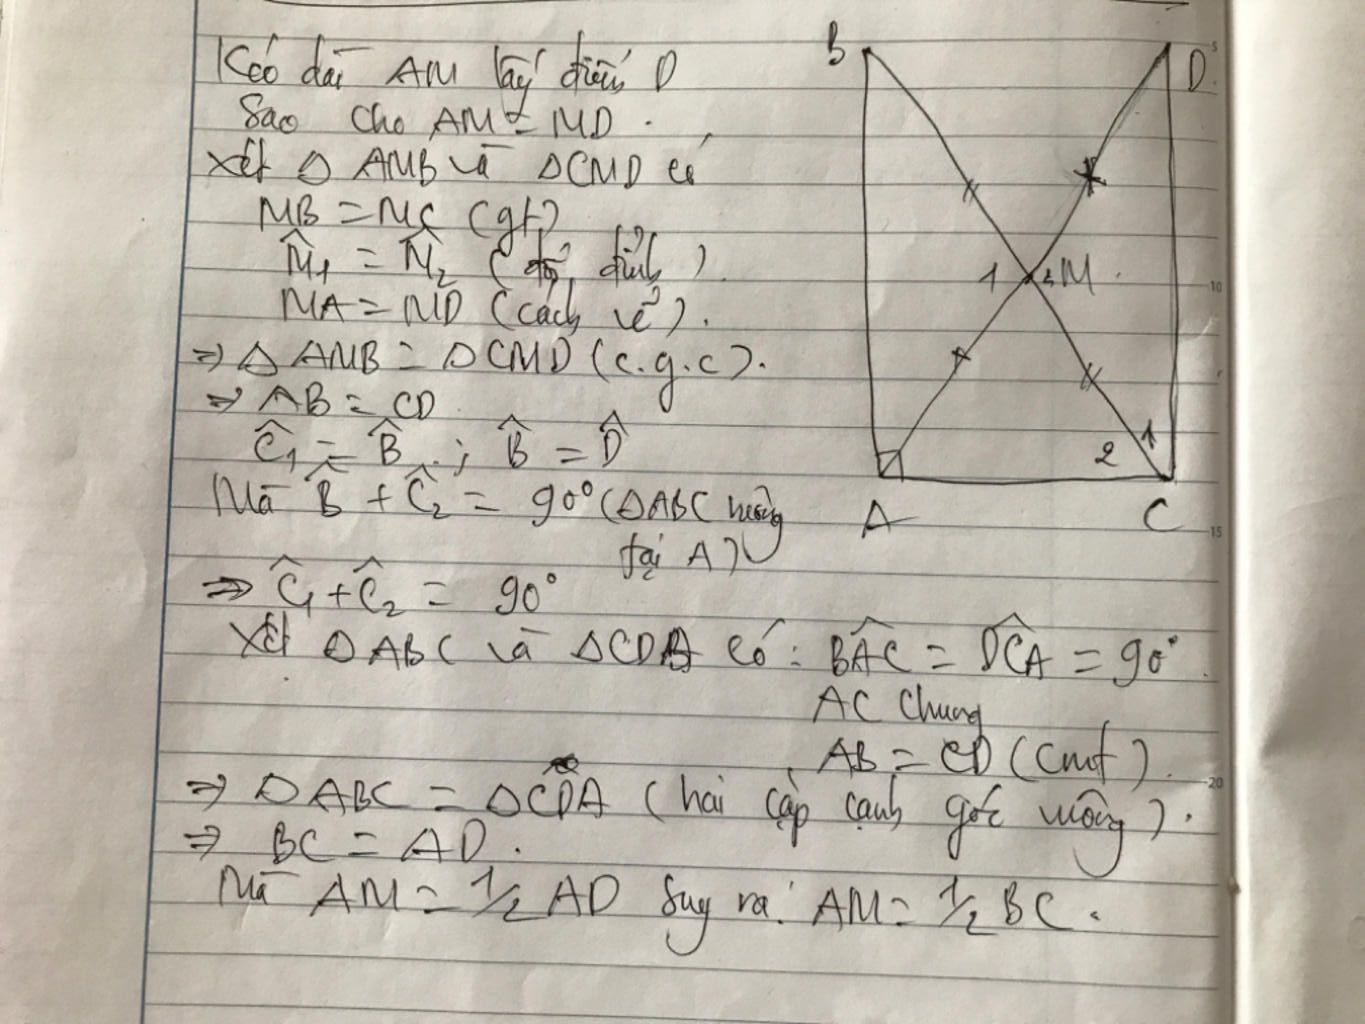 Kéo dài AM lấy điểm D
Sao cho AM = MD.
Xét Δ AMB và ΔCMD có
MB = MC (gt)
M̂₁ = M̂₂ (đối đỉnh).
MA = MD (cách vẽ).
=> Δ AMB = ΔCMD (c.g.c).
=> AB = CD
Ĉ₁ = B̂ ; B̂ = D̂
Mà B̂ + Ĉ₂ = 90° (ΔABC vuông
tại A)
=> Ĉ₁ + Ĉ₂ = 90°
Xét ΔABC và ΔCDA có: BÂC = DĈA = 90°
AC chung
AB = CD (cmt).
=> ΔABC = ΔCDA (hai cặp cạnh góc vuông).
=> BC = AD.
Mà AM = 1/2 AD Suy ra: AM = 1/2 BC.
B
D
1
2
M
1
2
A
C
5
10
15
20